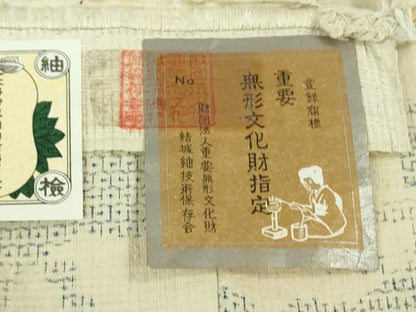 登録商標
重要
無形文化財指定
No
財団法人重要無形文化財
結城紬技術保存会
紬
検